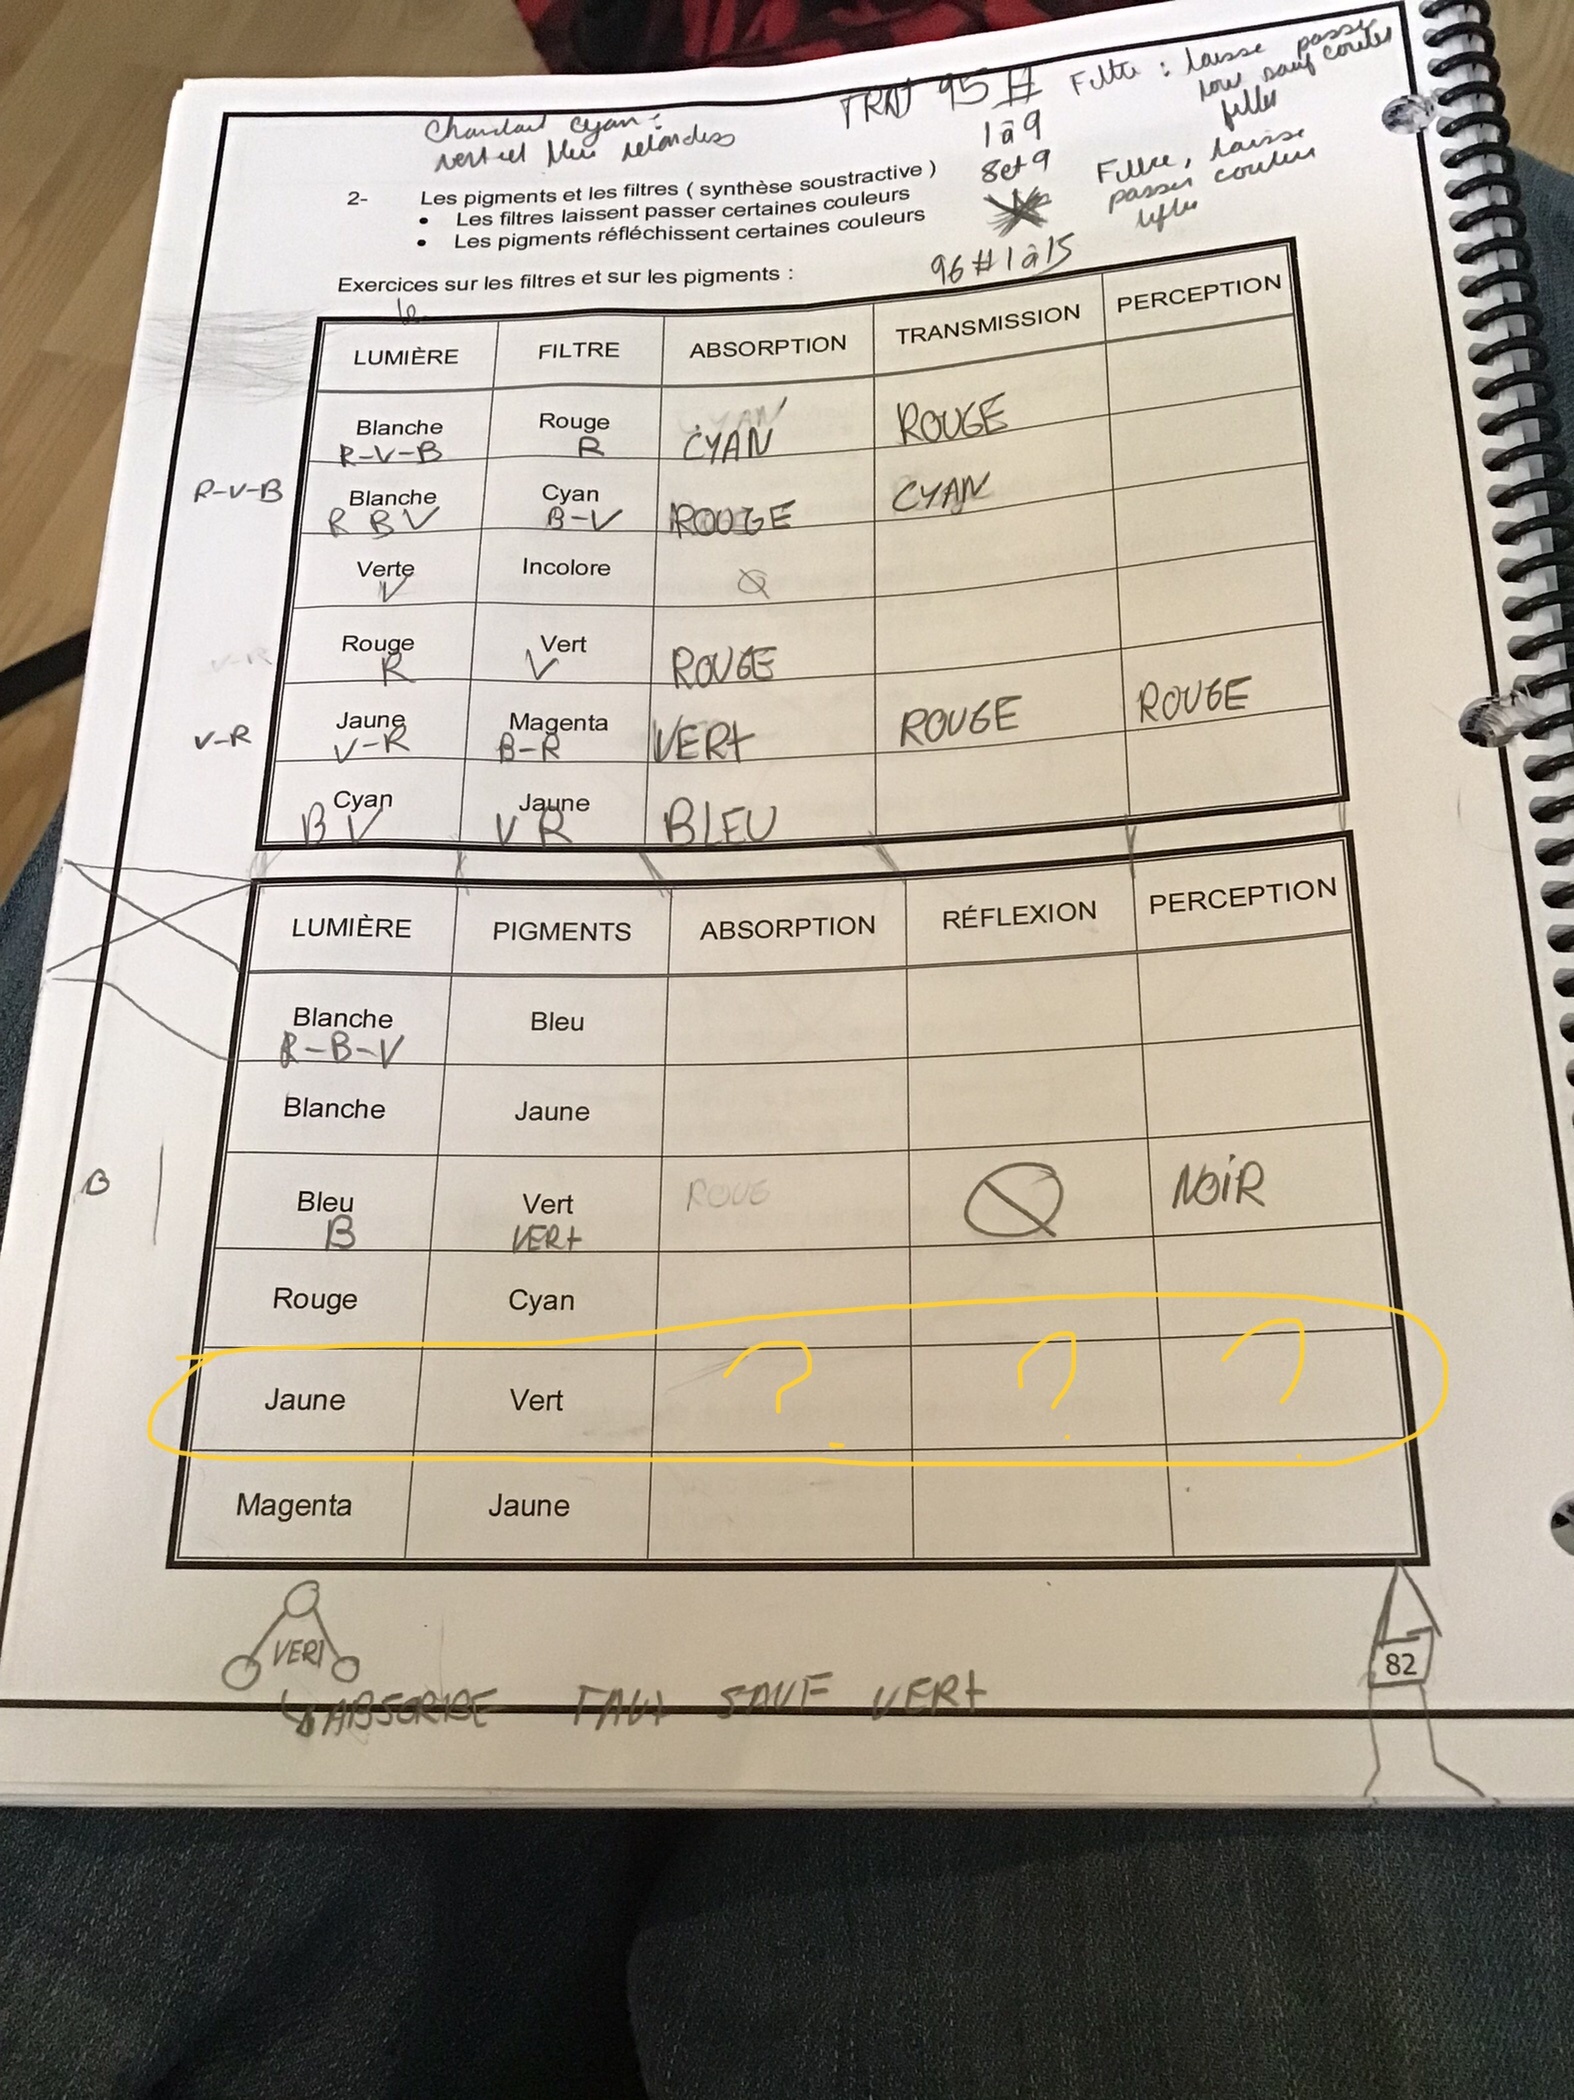 Chandail cyan :
vert et bleu
TRAJ 95 #
1 à 9
8 et 9
96 # 1 à 15
Filtre : laisse passer
tous sauf couleur
Filtre, laisse
passer couleur
2- Les pigments et les filtres ( synthèse soustractive )
• Les filtres laissent passer certaines couleurs
• Les pigments réfléchissent certaines couleurs
Exercices sur les filtres et sur les pigments :
LUMIÈRE FILTRE ABSORPTION TRANSMISSION PERCEPTION
Blanche Rouge CYAN ROUGE
R-V-B R
R-V-B Blanche Cyan ROUGE CYAN
R B V B-V
Verte Incolore Ø
V
V-R Rouge Vert ROUGE
R V
V-R Jaune Magenta VERt ROUGE ROUGE
V-R B-R
Cyan Jaune BLEU
B V V R
LUMIÈRE PIGMENTS ABSORPTION RÉFLEXION PERCEPTION
Blanche Bleu
R-B-V
Blanche Jaune
B Bleu Vert ROUG Ø NOiR
B VERt
Rouge Cyan
Jaune Vert ? ? ?
Magenta Jaune
VERt
ABSORBE TAUt SAUF VERt
82